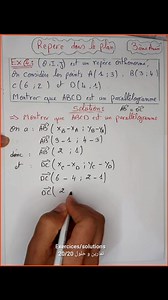 Repère dans le plan
3ème Année
Exo: (O.I.J) est un repère orthonormé.
On considère les points A(1;3), B(3;4)
C(6;2) et D(4;1)
Montrer que ABCD est un parallélogramme
Solutions
⇒ Montrer que ABCD est un parallélogramme
AB = DC
On a : AB (xB - xA ; yB - yA)
AB (3 - 1 ; 4 - 3)
donc : AB (2 ; 1)
et DC (xC - xD ; yC - yD)
DC (6 - 4 ; 2 - 1)
DC (2
Exercices/solutions
تمارين و حلول 20/20